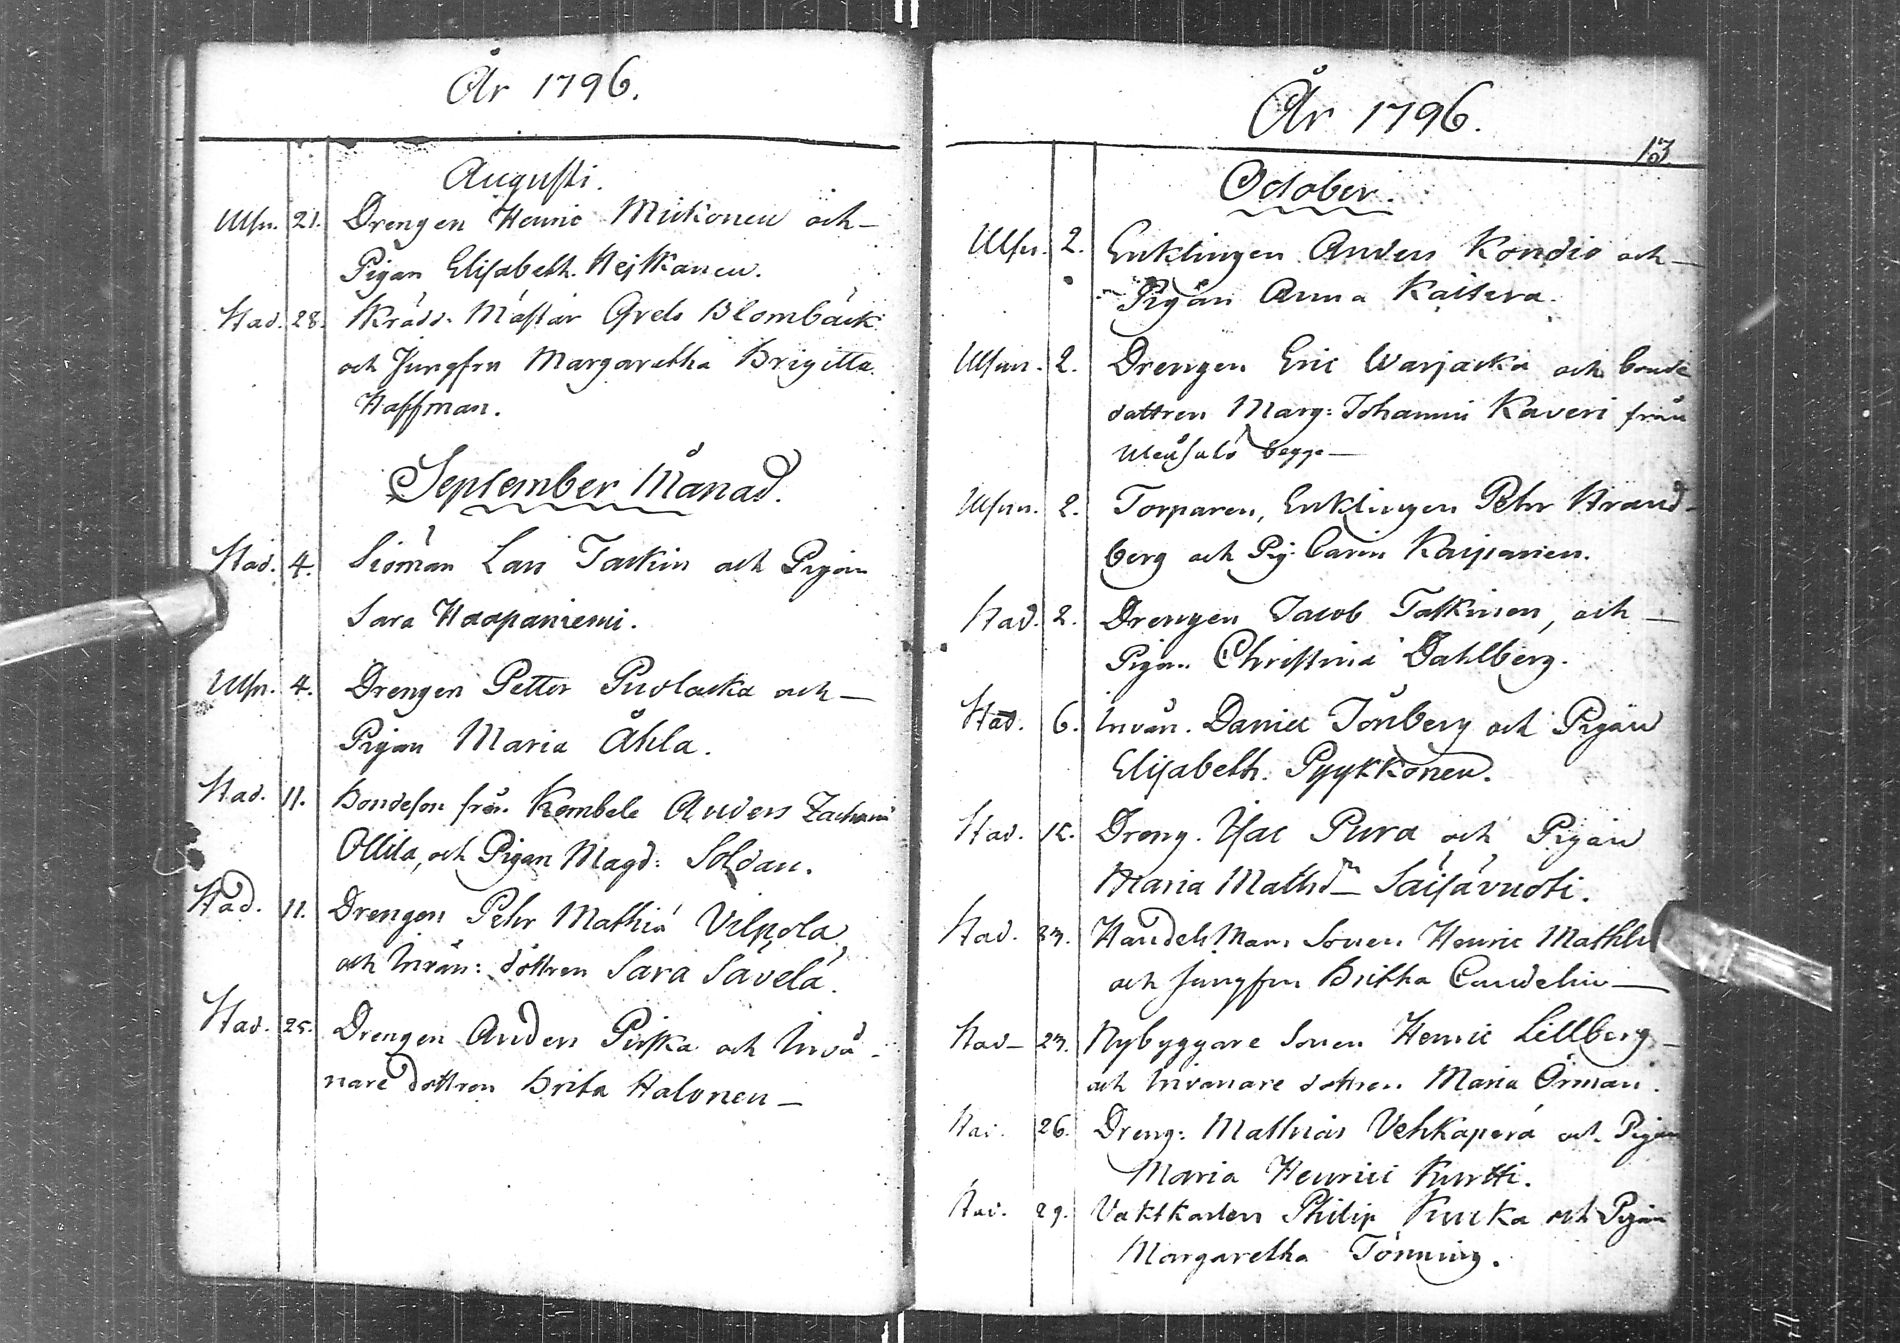 År 1796.
Augusti.
Ulsn. 21. Drengen Henric Mickonen och
Pigan Elisabeth Hejkkanen.
Stad. 28. Skrädd. Mästar Axel Blombäck
och Jungfru Margaretha Brigitta
Haffman.
September Månad.
Stad. 4. Siöman Lars Taskin och Pigan
Sara Haapaniemi.
Ulsn. 4. Drengen Petter Puolacka och
Pigan Maria Åhla.
Stad. 11. Bondeson från Kembele Anders Zachariæ
Ollila, och Pigan Magd: Soldan.
Stad. 11. Drengen Pehr Mathiæ Vilpola
och Invån: dottren Sara Sävelä.
Stad. 25. Drengen Anders Pirska och Invå
nare dottren Brita Halonen
År 1796.
13
October.
Ulsn. 2. Enklingen Anders Kondio och
Pigan Anna Kaitera.
Ulsnn. 2. Drengen Eric Warjacka och bonde
dottren Marg: Johanni Kaveri från
Uleåsalo begge
Ulsnn. 2. Torparen, Enklingen Pehr Strand
berg och Pig. Carin Karjanien.
Stad. 2. Drengen Jacob Taskinen, och
Pigan Christina Dahlberg.
Stad. 6. Invån. Daniel Tönberg och Pigan
Elisabeth. Pyykkönen.
Stad. 12. Dreng. Isac Pura och Pigan
Maria Mathsdr Säisävuoti.
Stad. 23. Handels Mans Sonen Henric Mathl
och Jungfru Britha Candelin
Stad 23. Nybyggare Sonen Henric Lillberg
och Invånare dottren Maria Örman.
Stad. 26. Dreng: Mathias Vehkaperä och Pigan
Maria Henrici Kurtti.
Stad. 29. Vaktkarlen Philip Kucka och Pigan
Margaretha Tönning.